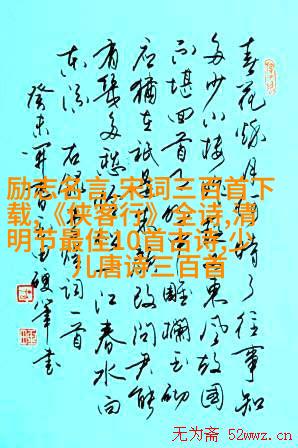 春花秋月何时了往事知
多少小楼昨夜又東风故国
不堪回首月明中雕欄玉砌
应犹在只是朱颜改问君能
有几多愁恰似一江春水向
东流 右录李煜词一首
癸未
硬笔书
励志名言,宋词三百首下
载,《侠客行》全诗,清
明节最佳10首古诗,少
儿唐诗三百首
无为斋 52wwz.cn